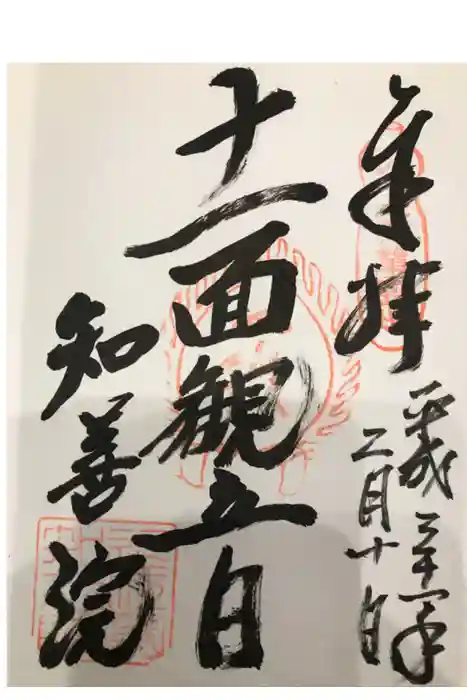 奉拝
平成三十一年
二月十日
十一面観音
知善院